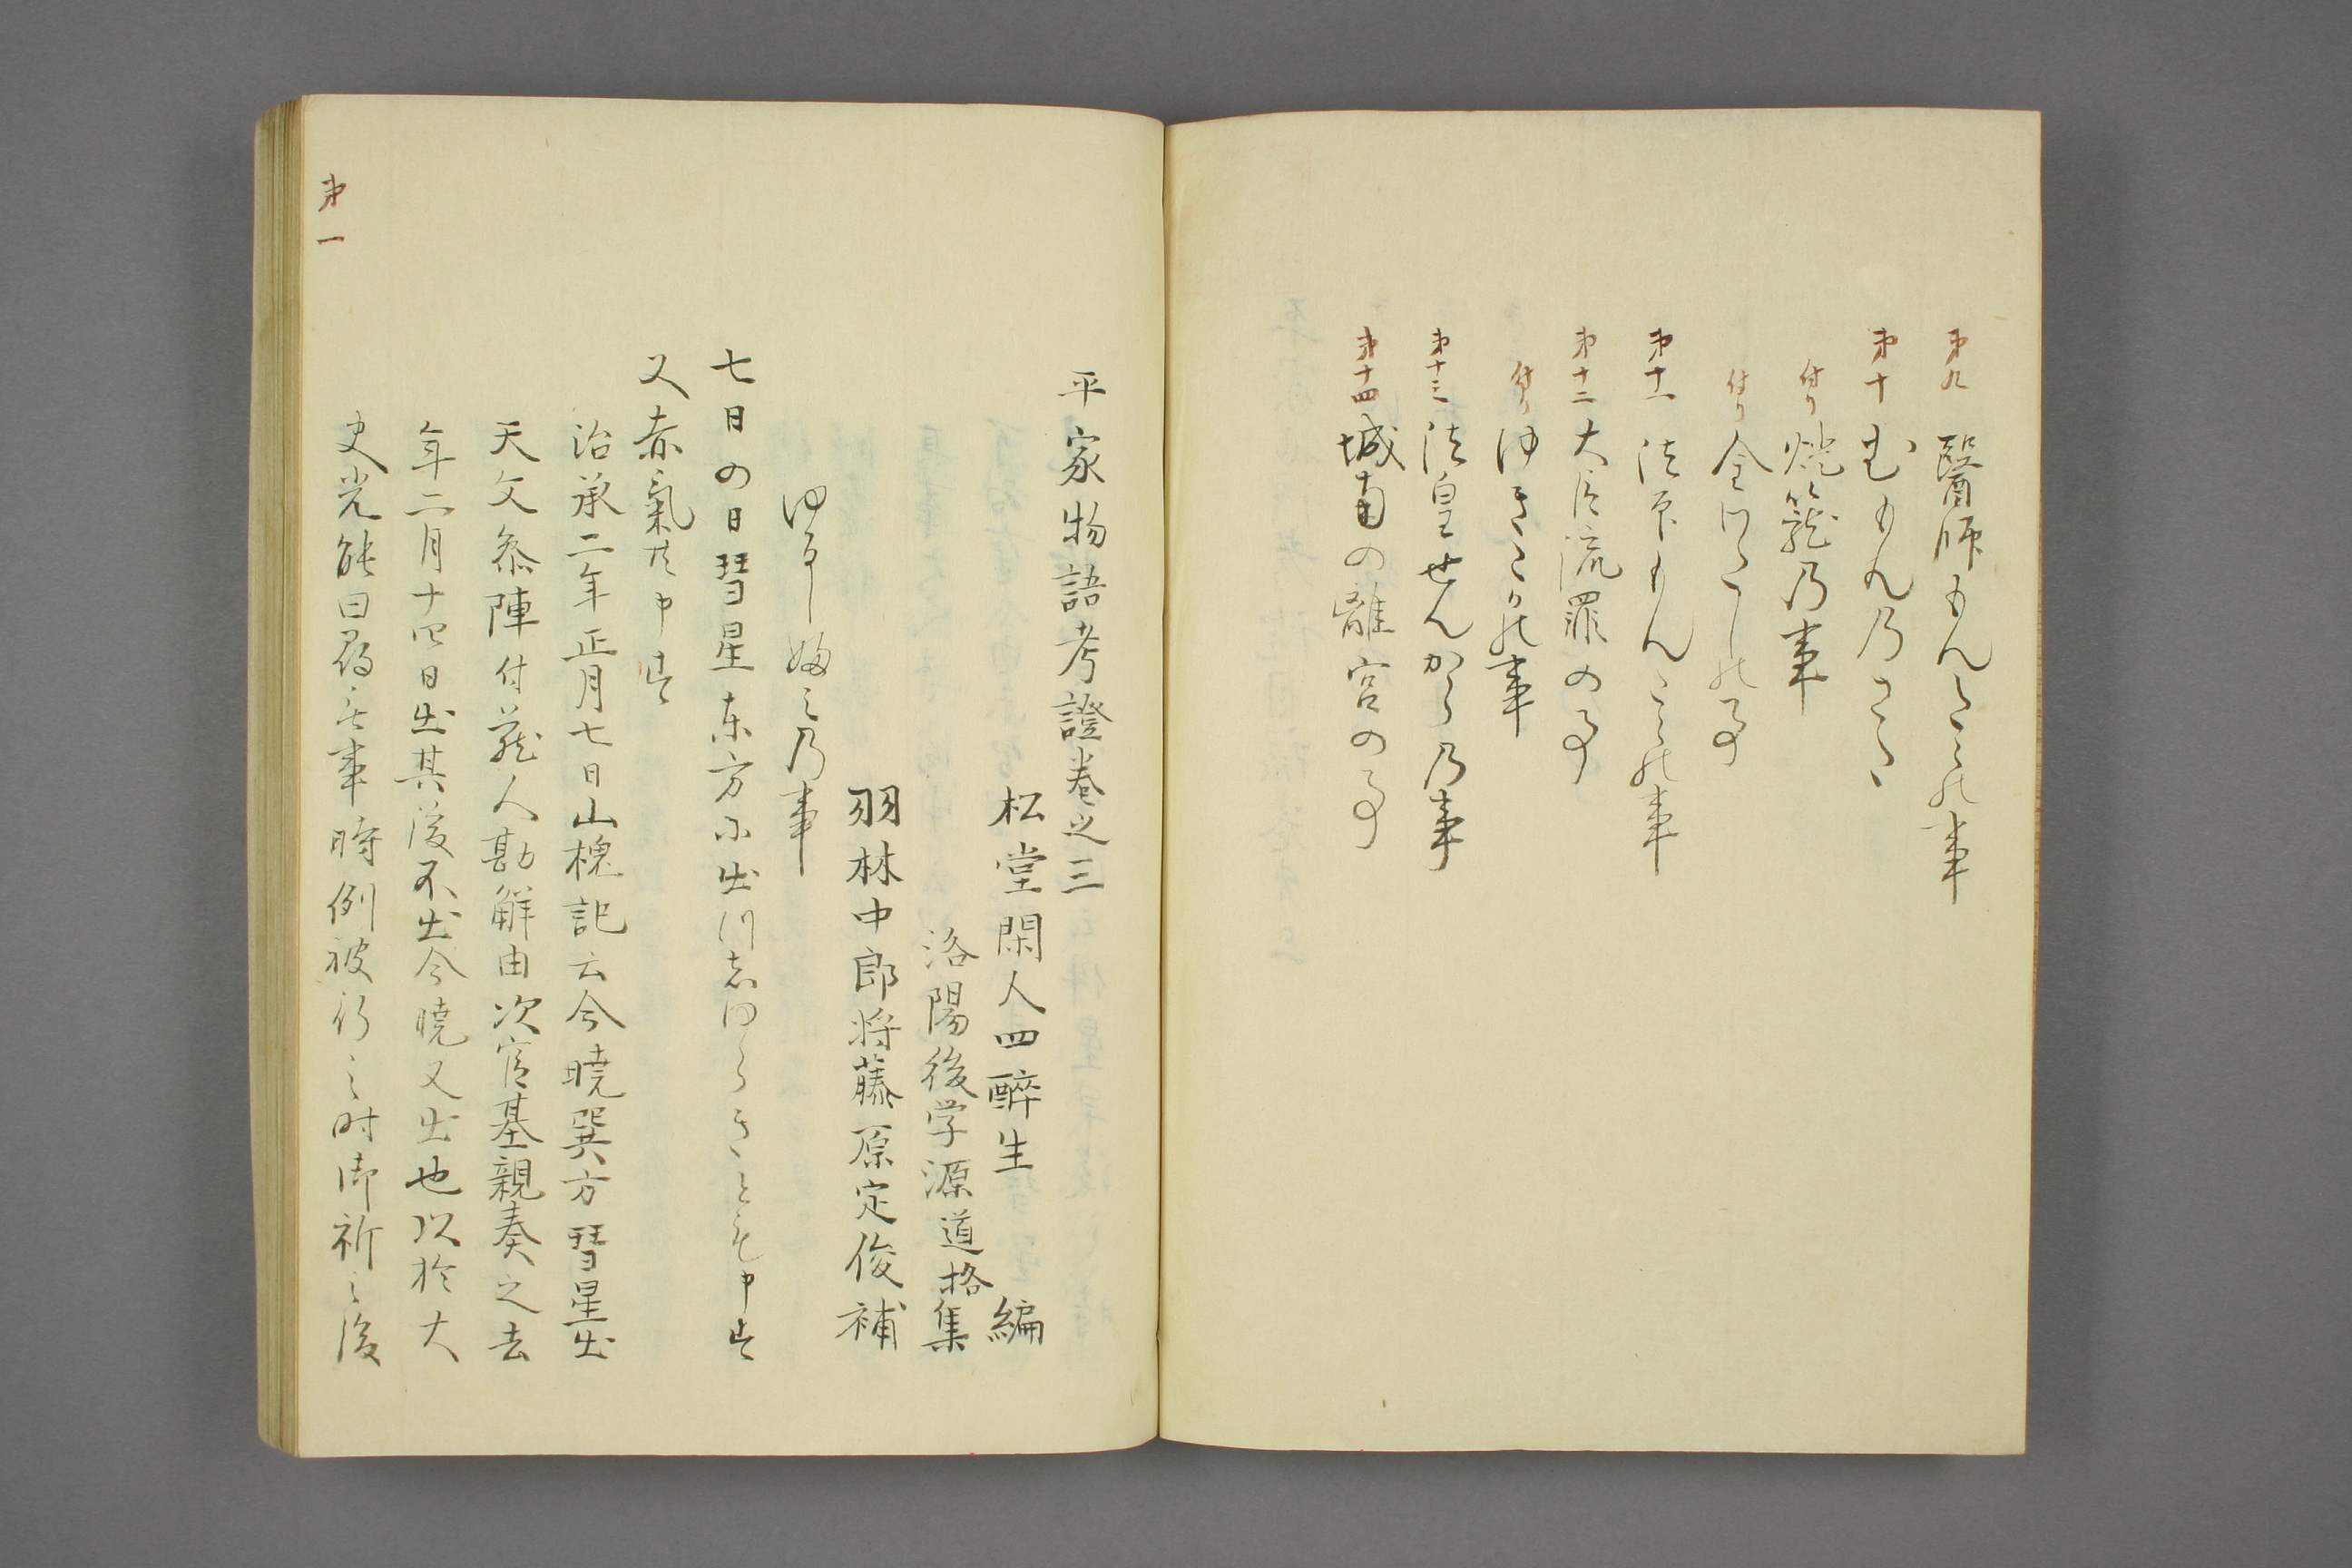 第九 醫師もんたうの事
第十 むもんのさた
付り 燈籠乃事
付り 金わたしの事
第十一 法印もんたうの事
第十二 大臣流罪の事
付り ゆきたかの事
第十三 法皇せんから乃事
第十四 城南の離宮の事
平家物語考證巻之三
松堂閑人四醉生 編
洛陽後学源道格集
羽林中郎将藤原定俊補
第一
ゆるし婦みの事
七日の日彗星東方に出
又赤氣共申す
治承二年正月七日山槐記云今曉巽方彗星出
天文参陣付蔵人勘解由次官基親奏之去
年二月十四日出其後不出今曉又出也以於大
史光能曰 事時例被行之時御祈之後